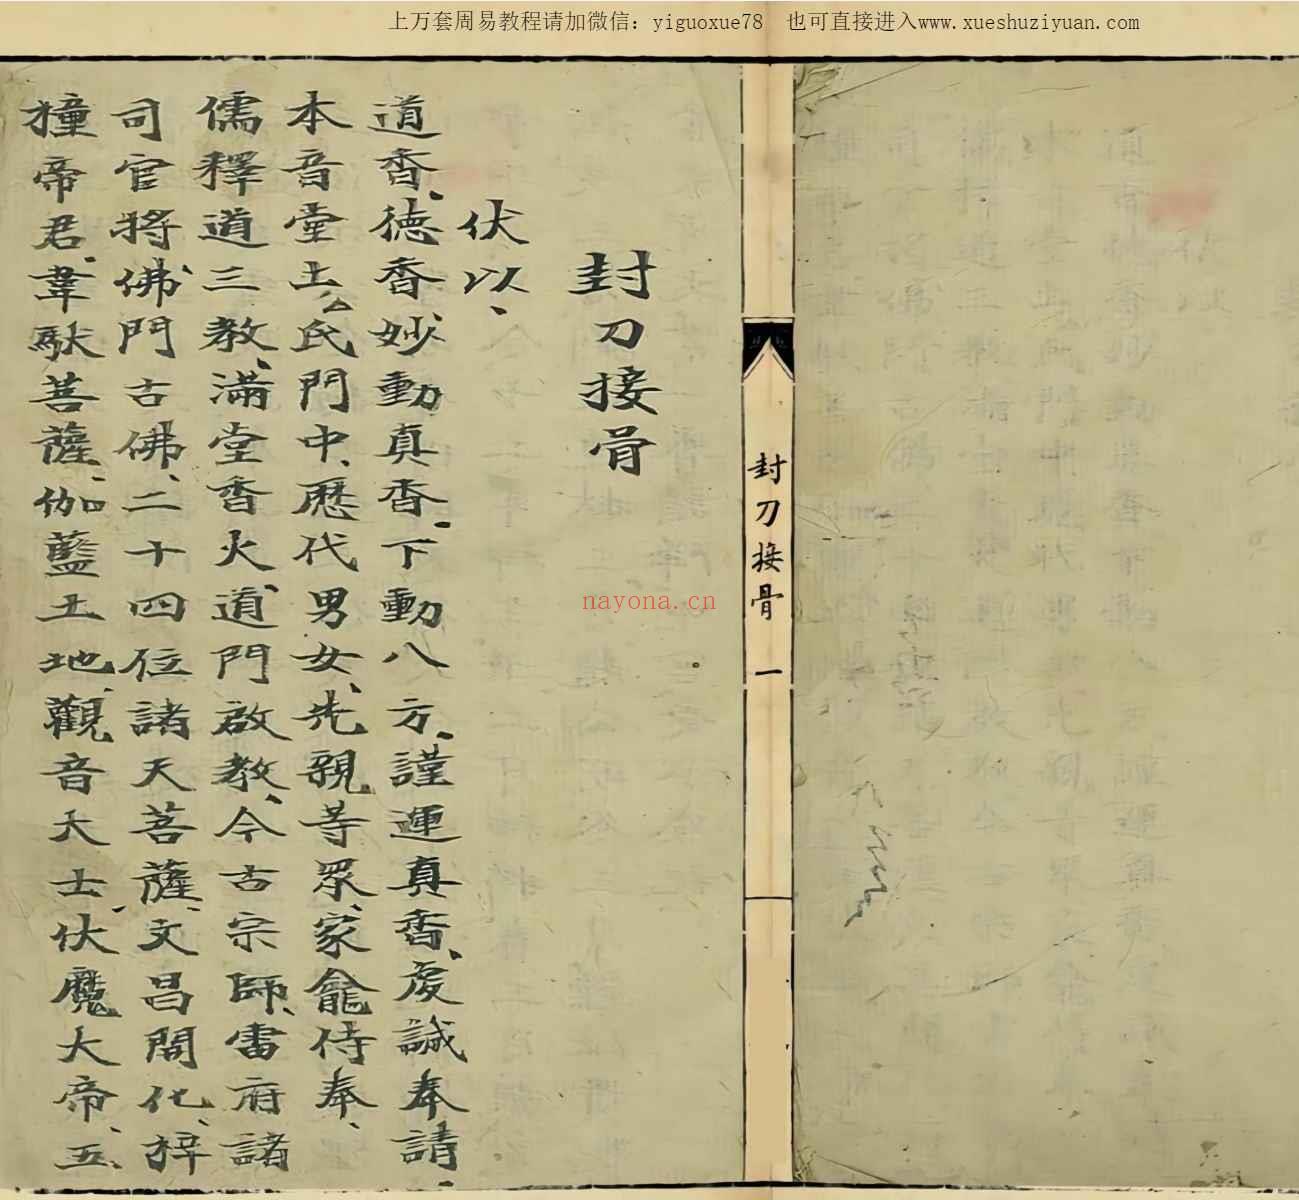 上万套周易教程请加微信：yiguoxue78　也可直接进入www.xueshuziyuan.com
封刀接骨　一
封刀接骨
伏以、
道香、德香、妙動真香、下動八方、謹運真香、虔誠奉請、
本音堂上厶氏門中、歷代男女、先親等眾、家龕侍奉、
儒釋道三教、滿堂香火、道門啟教、今古宗師、雷府諸
司官將、佛門古佛、二十四位諸天菩薩、文昌開化、梓
橦帝君、韋馱菩薩、伽藍土地、觀音大士、伏魔大帝、五
nayona.cn